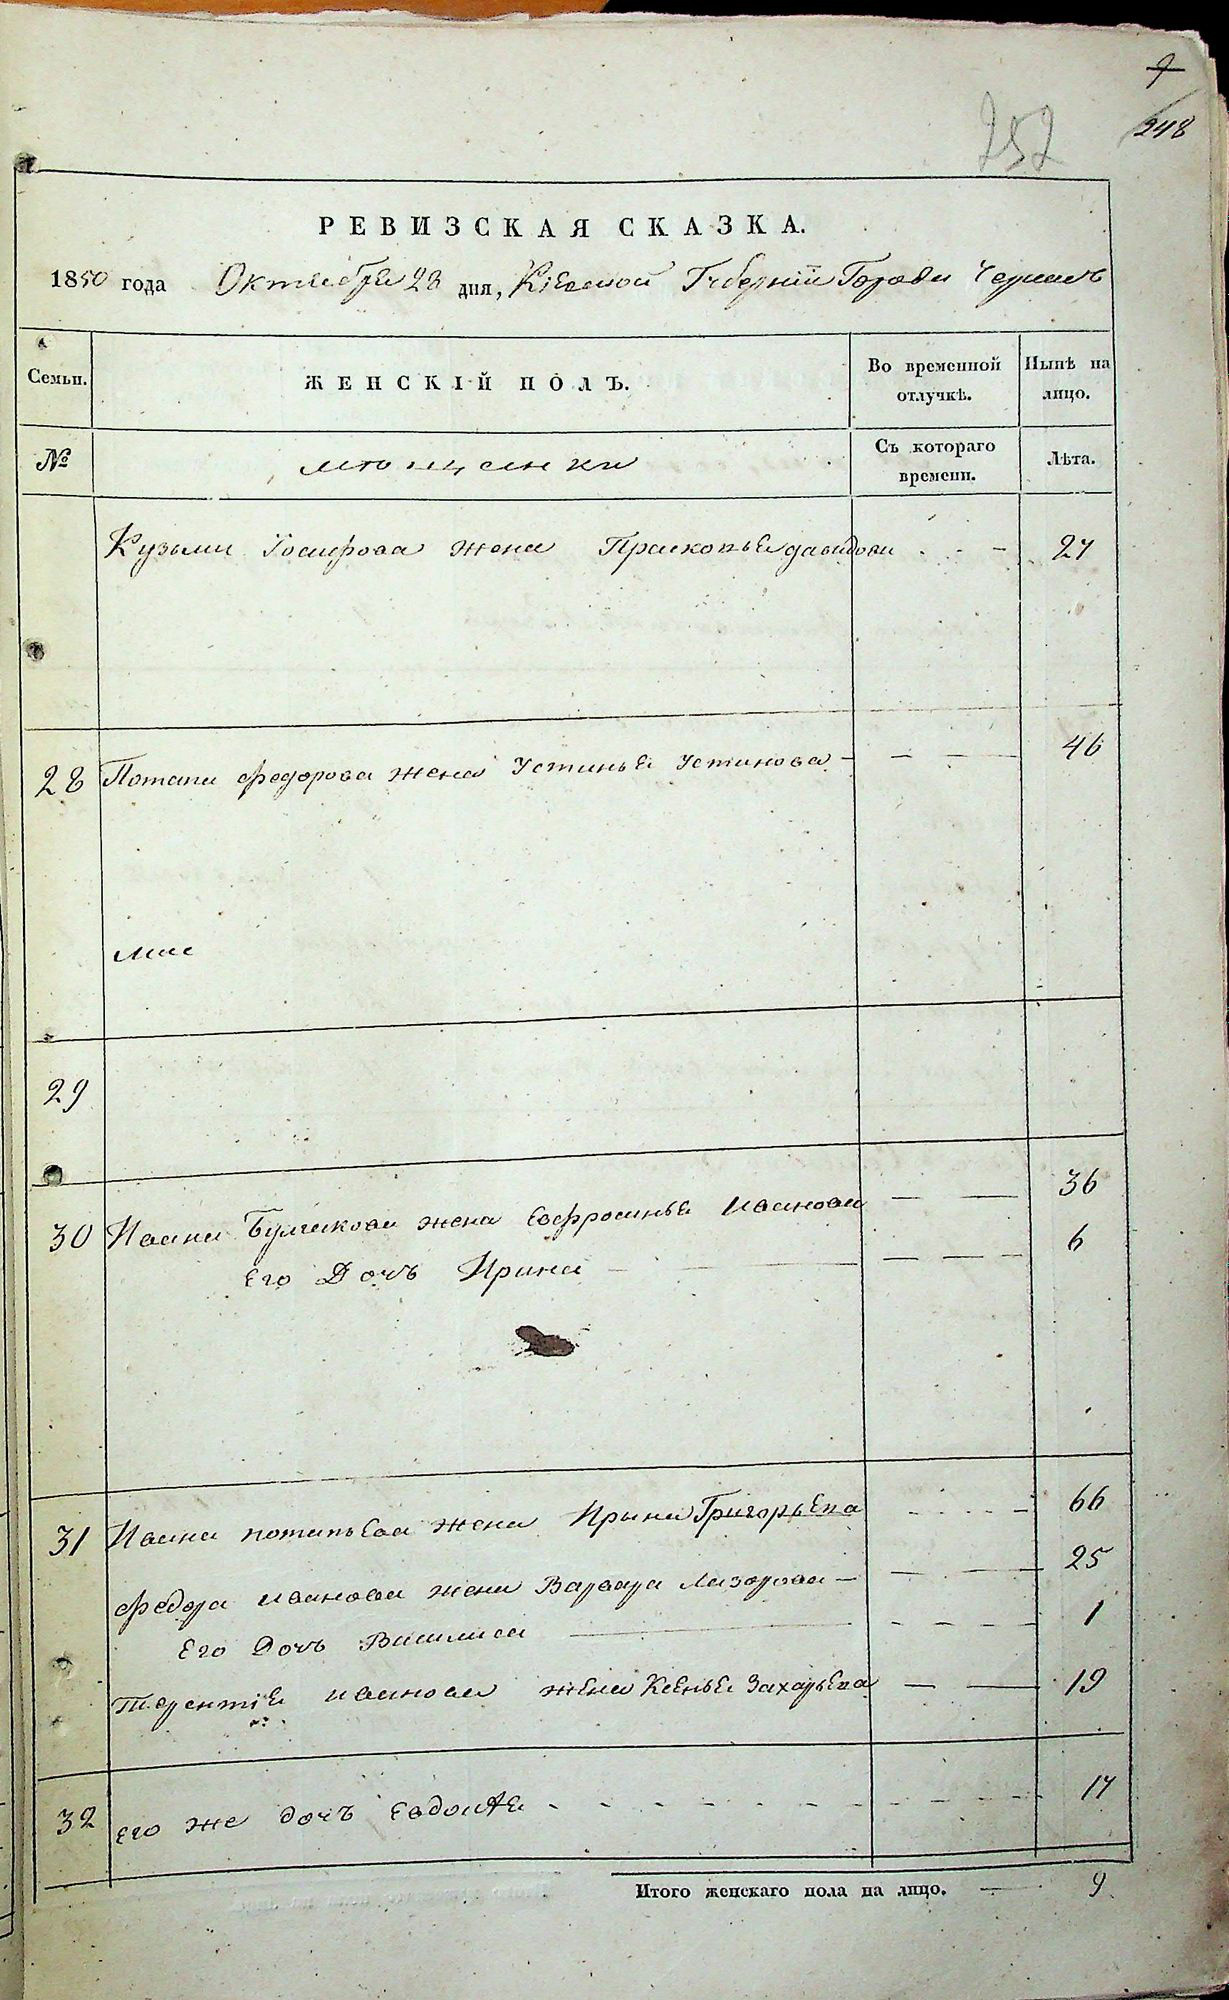 9
248
252
РЕВИЗСКАЯ СКАЗКА.
1850 года Октября 28 дня, Кіевской Губерніи Города
Семьи. ЖЕНСКІЙ ПОЛЪ. Во временной отлучкѣ. Нынѣ на лицо.
№ мѣщанки Съ котораго времени. Лѣта.
Кузьмы Іосифова жена Прасковья давидова 27
28 Потапа федорова жена Устинья Устинова 46
29
30 Ивана Булакова жена Евфросинья Иванова 36
Его Дочь Ирина 6
31 Ивана потапьева жена Ирина Григорьева 66
федора иванова жена Варвара Лазарова 25
Его Дочь Василиса 1
терентіе иванова жена Ксенья Захарьева 19
32 его же дочь Евдокѣя 17
Итого женскаго пола на лицо. 9